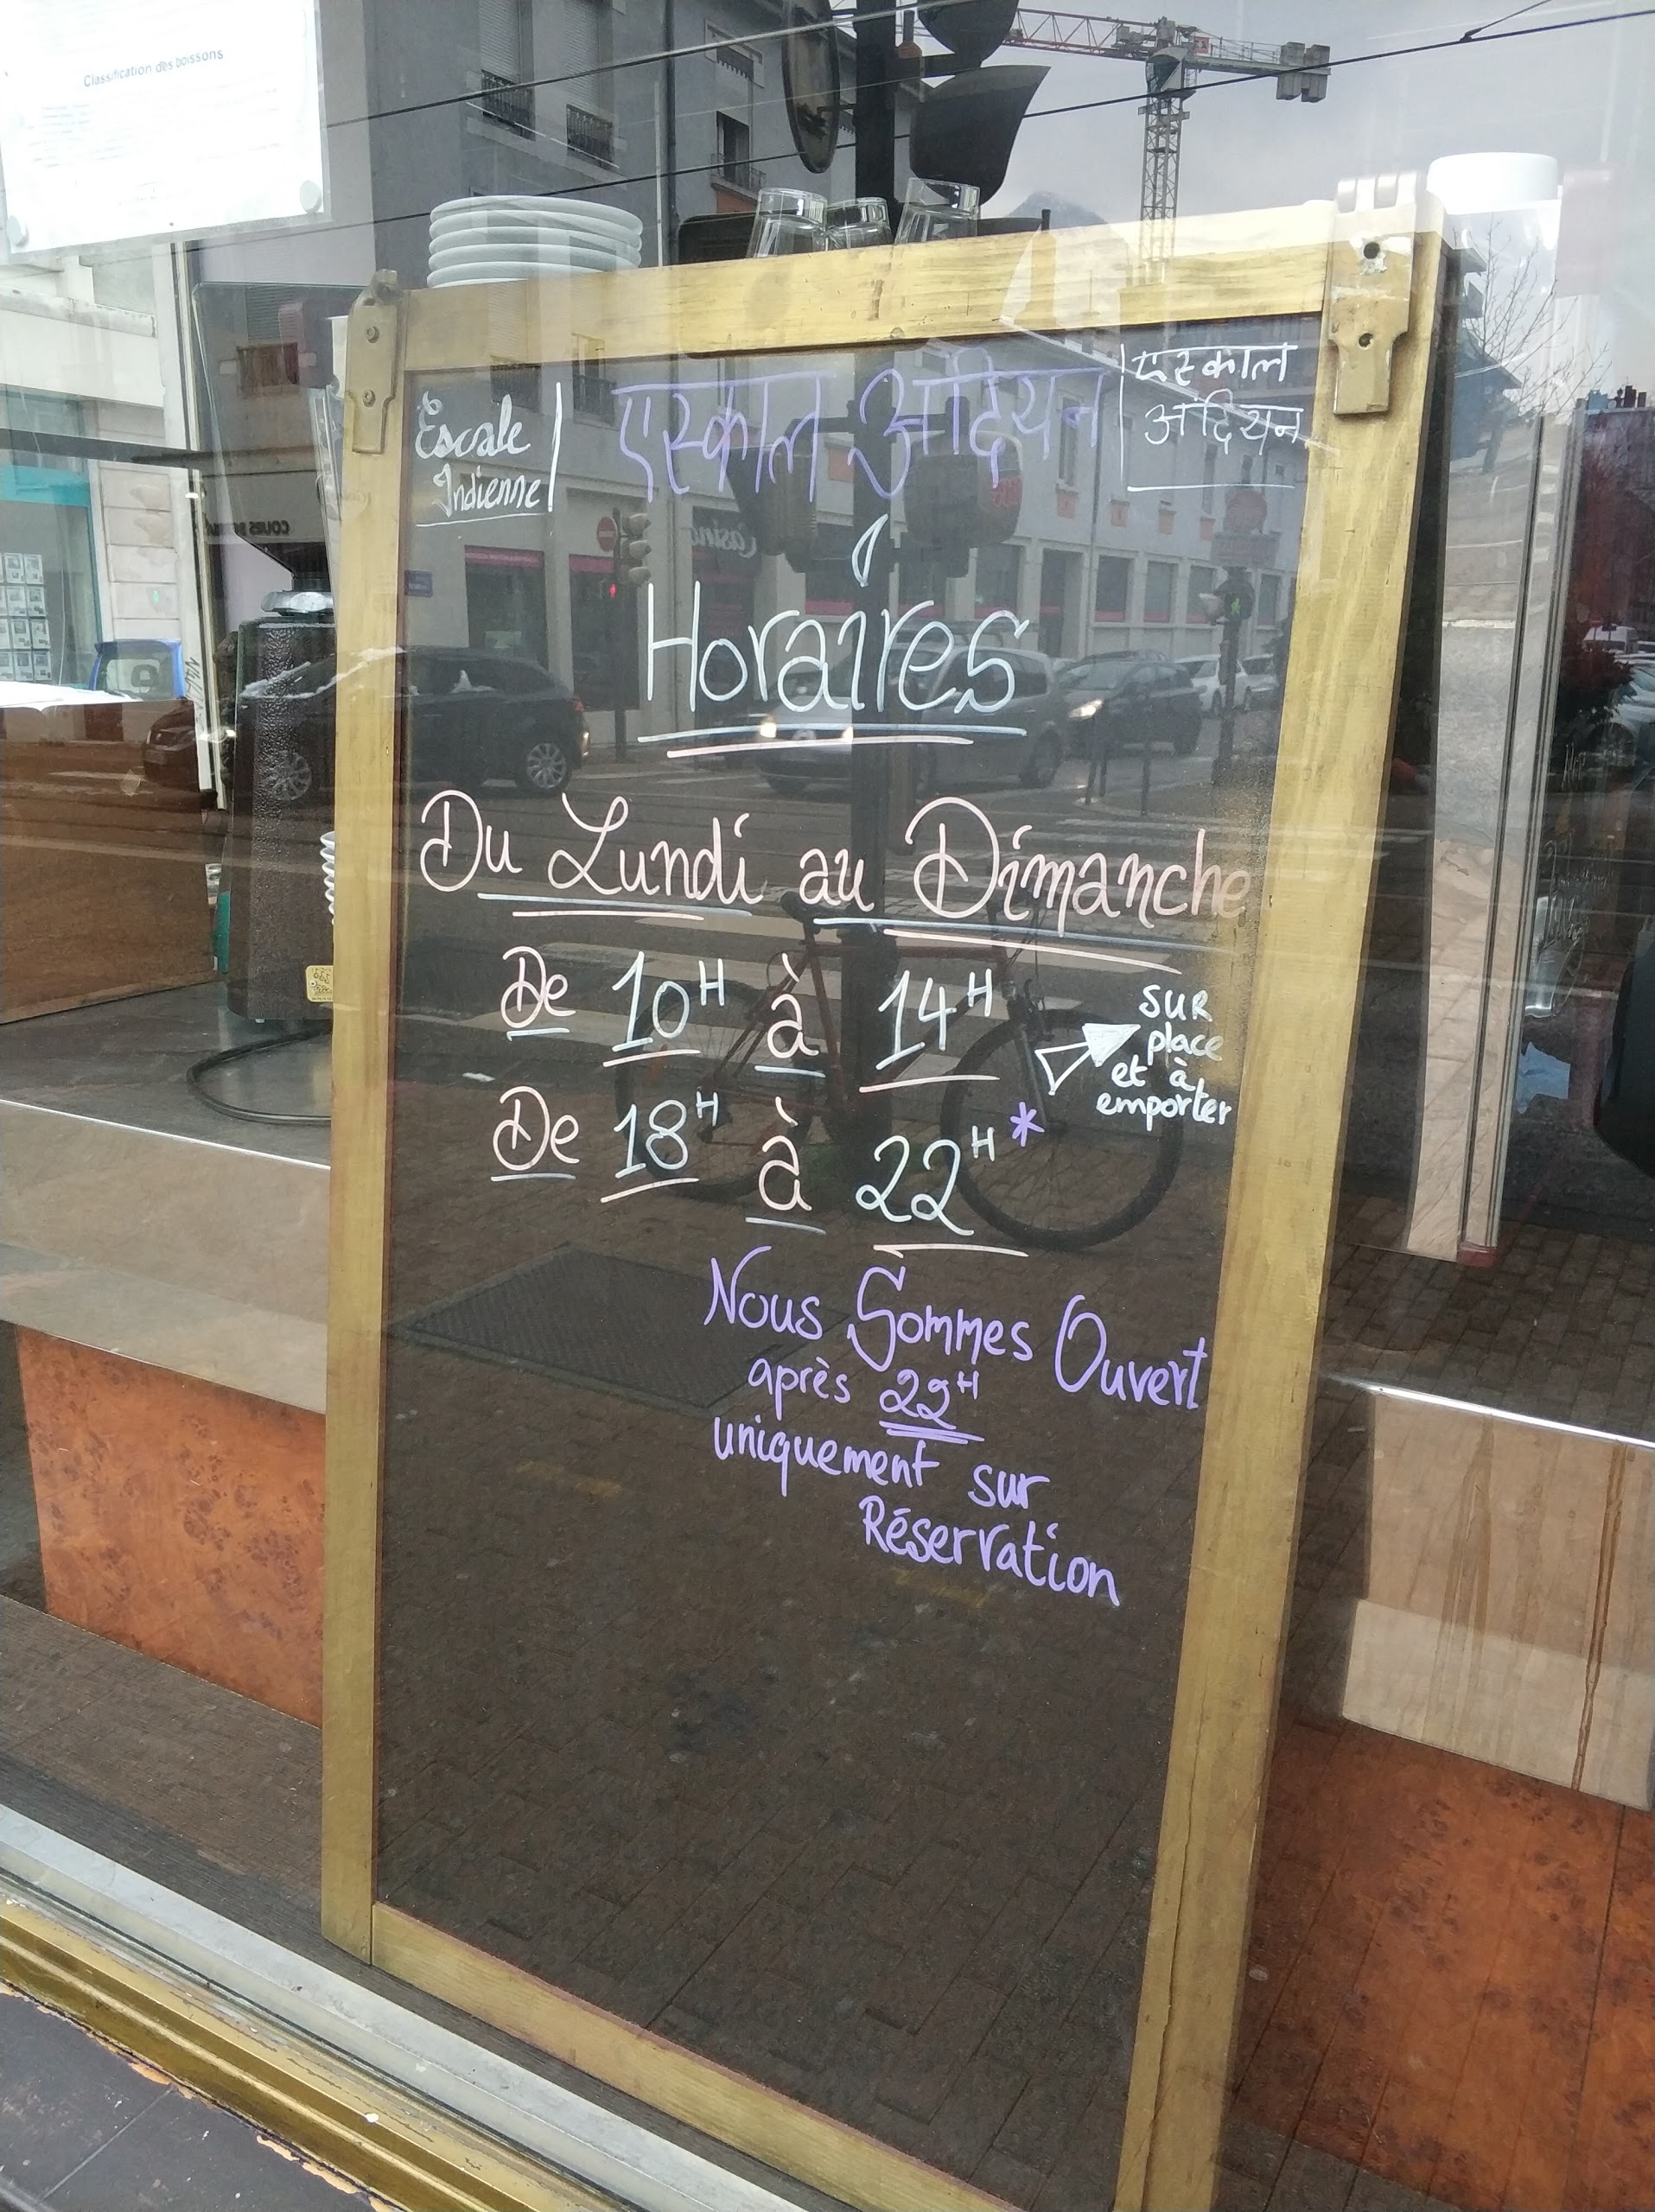 Classification des boissons
Escale
Indienne
एस्काल अंदियन
एस्काल
अंदियन
Horaires
Du Lundi au Dimanche
De 10H à 14H
sur
place
et à
emporter
De 18H à 22H*
Nous Sommes Ouvert
après 22H
uniquement sur
Réservation
Casino